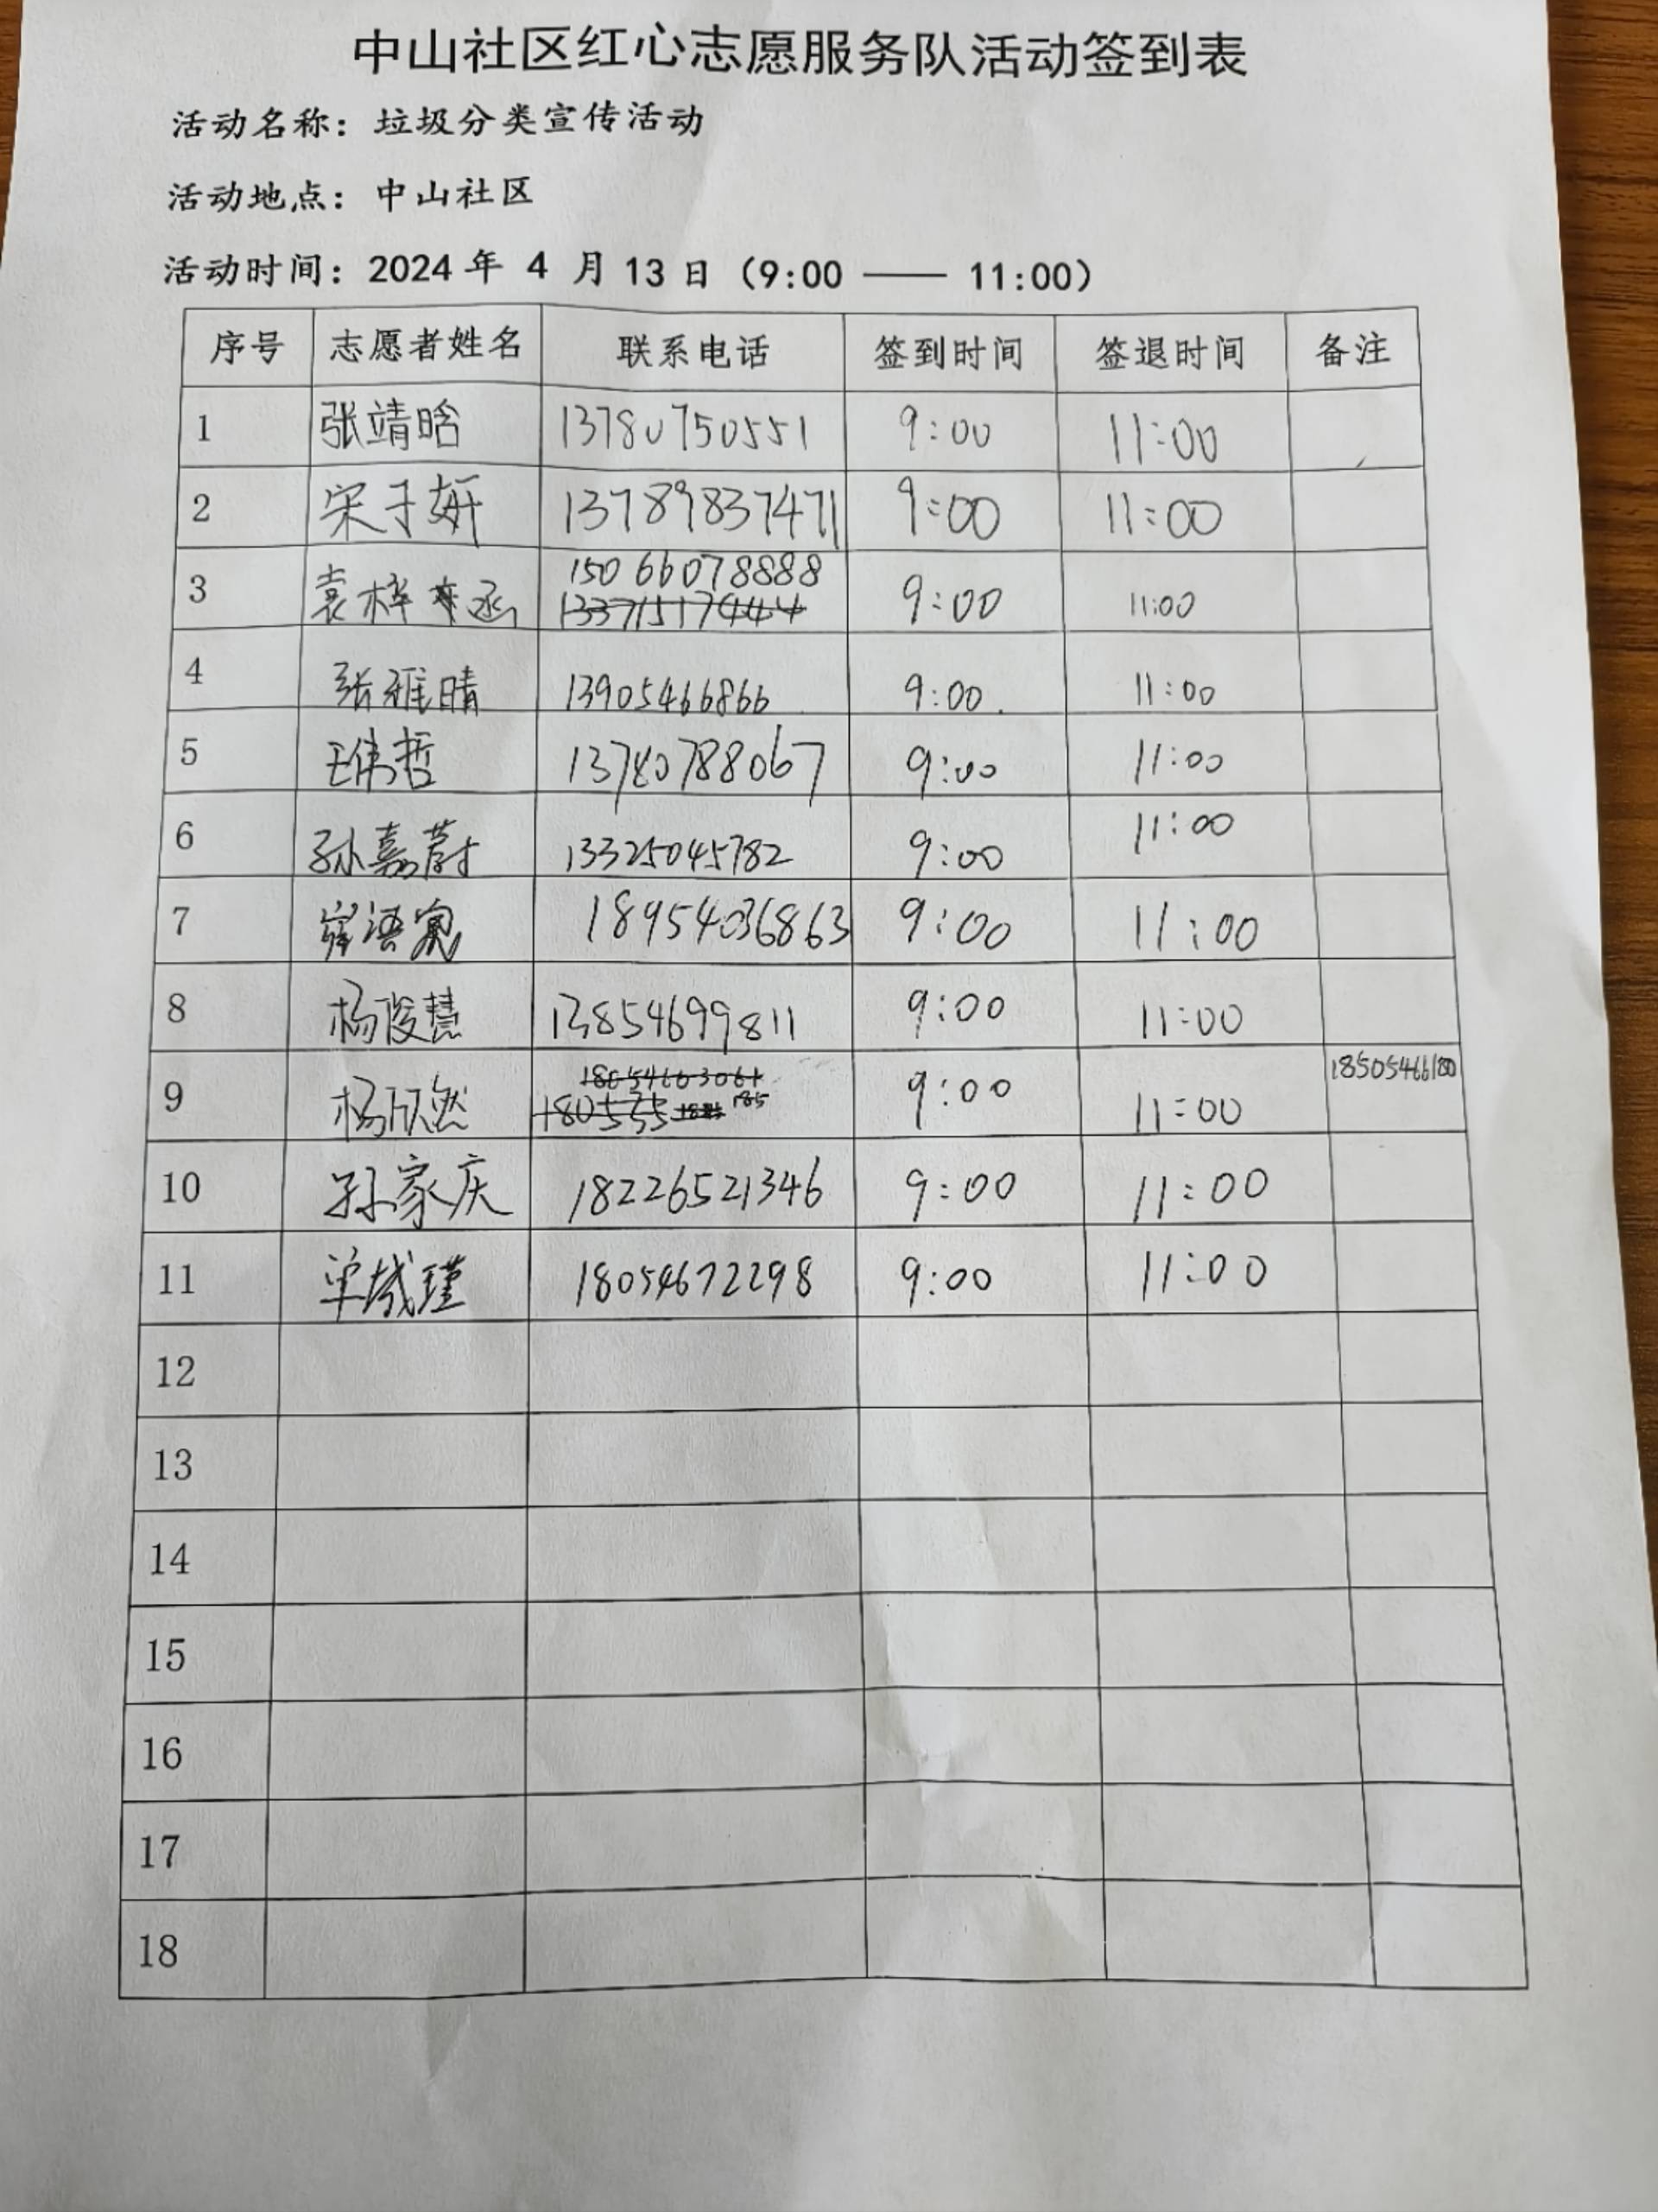 中山社区红心志愿服务队活动签到表
活动名称：垃圾分类宣传活动
活动地点：中山社区
活动时间：2024 年 4 月 13 日（9:00 —— 11:00）
序号 志愿者姓名 联系电话 签到时间 签退时间 备注
1 张靖晗 13780750551 9:00 11:00
2 宋子妍 13789837471 9:00 11:00
3 袁梓涵 15066078888 9:00 11:00
13371517444
4 张雅晴 13905466866 9:00 11:00
5 王伟哲 13780788067 9:00 11:00
6 孙嘉蔚 13325045782 9:00 11:00
7 语 18954036863 9:00 11:00
8 杨俊慧 13854699811 9:00 11:00
9 杨欣然 9:00 11:00 18505466180
10 孙家庆 18226521346 9:00 11:00
11 单城瑾 18054672298 9:00 11:00
12
13
14
15
16
17
18